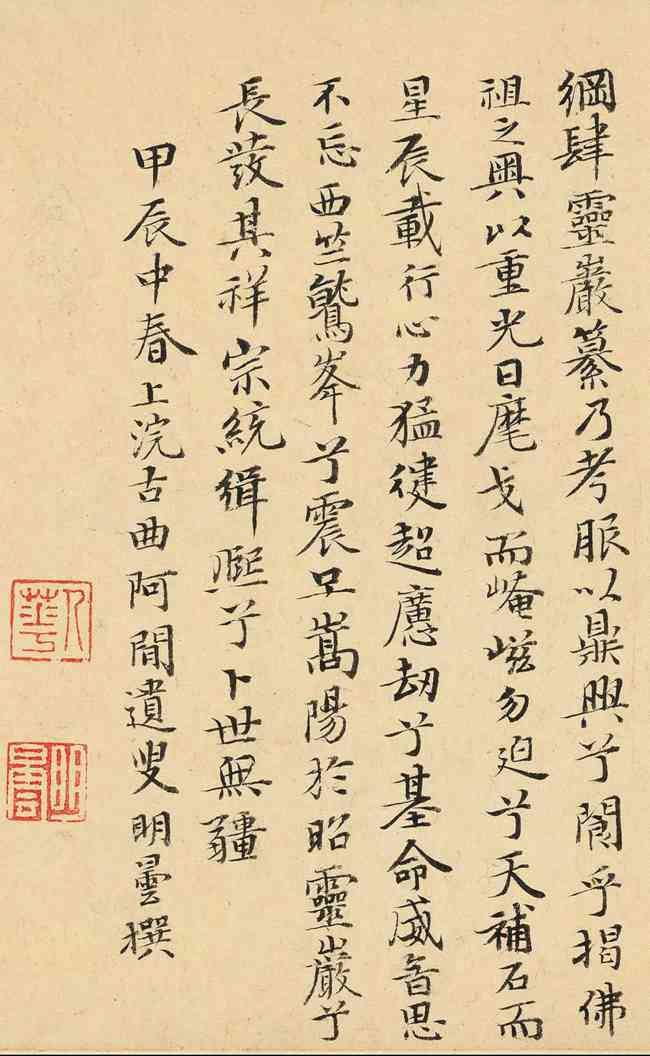 綱肆靈巖纂乃考服以鼎興兮閬乎揭佛
祖之奧以重光日麾戈而崦嵫勿迫兮天補石而
星辰載行心力猛健超應劫兮基命威音思
不忘西竺鷲峯兮震旦嵩陽於昭靈巖兮
長發其祥宗統緝熙兮卜世無疆
甲辰中春上浣古曲阿閒遺叟明曇撰